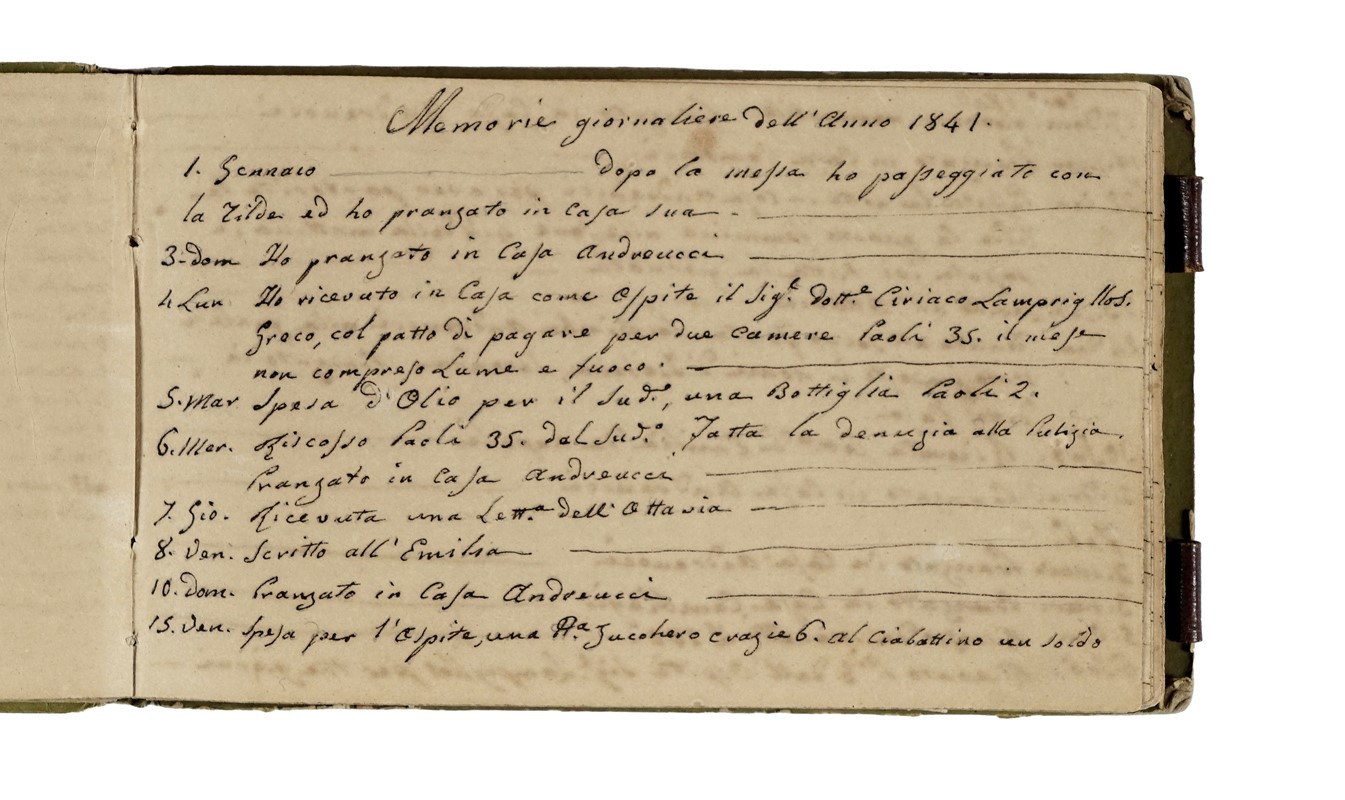 Memorie giornaliere dell'Anno 1841.
1. Gennaio ———— dopo la messa ho passeggiato con
la Tilde ed ho pranzato in Casa sua.
3. Dom Ho pranzato in Casa Andreucci
4 Lun Ho ricevuto in Casa come Ospite il Sigʳ. Dottᵉ. Ciriaco
Greco, col patto di pagare per due camere Paoli 35. il mese
non compreso Lume e fuoco.
5. Mar Spesa d'Olio per il Sudº., una Bottiglia Paoli 2.
6. Mer. Riscosso Paoli 35. dal Sudº. Fatta la denuzia alla Pulizia.
Pranzato in Casa Andreucci
7. Gio. Ricevuta una Lettª. dell'Ottavia
8. Ven. Scritto all'Emilia
10. Dom. Pranzato in Casa Andreucci
15. Ven. Spesa per l'Ospite, una Zucchero crazie 6. al Ciabattino un soldo